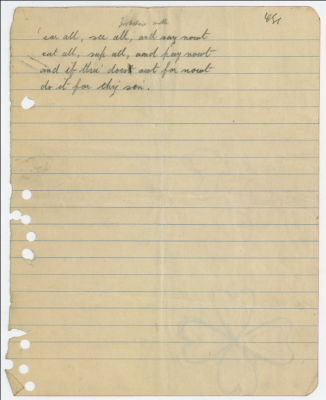 'ear all, see all, and say nowt
eat all, sup all, and pay nowt
and if thu does owt for nowt
do it for thy sen.